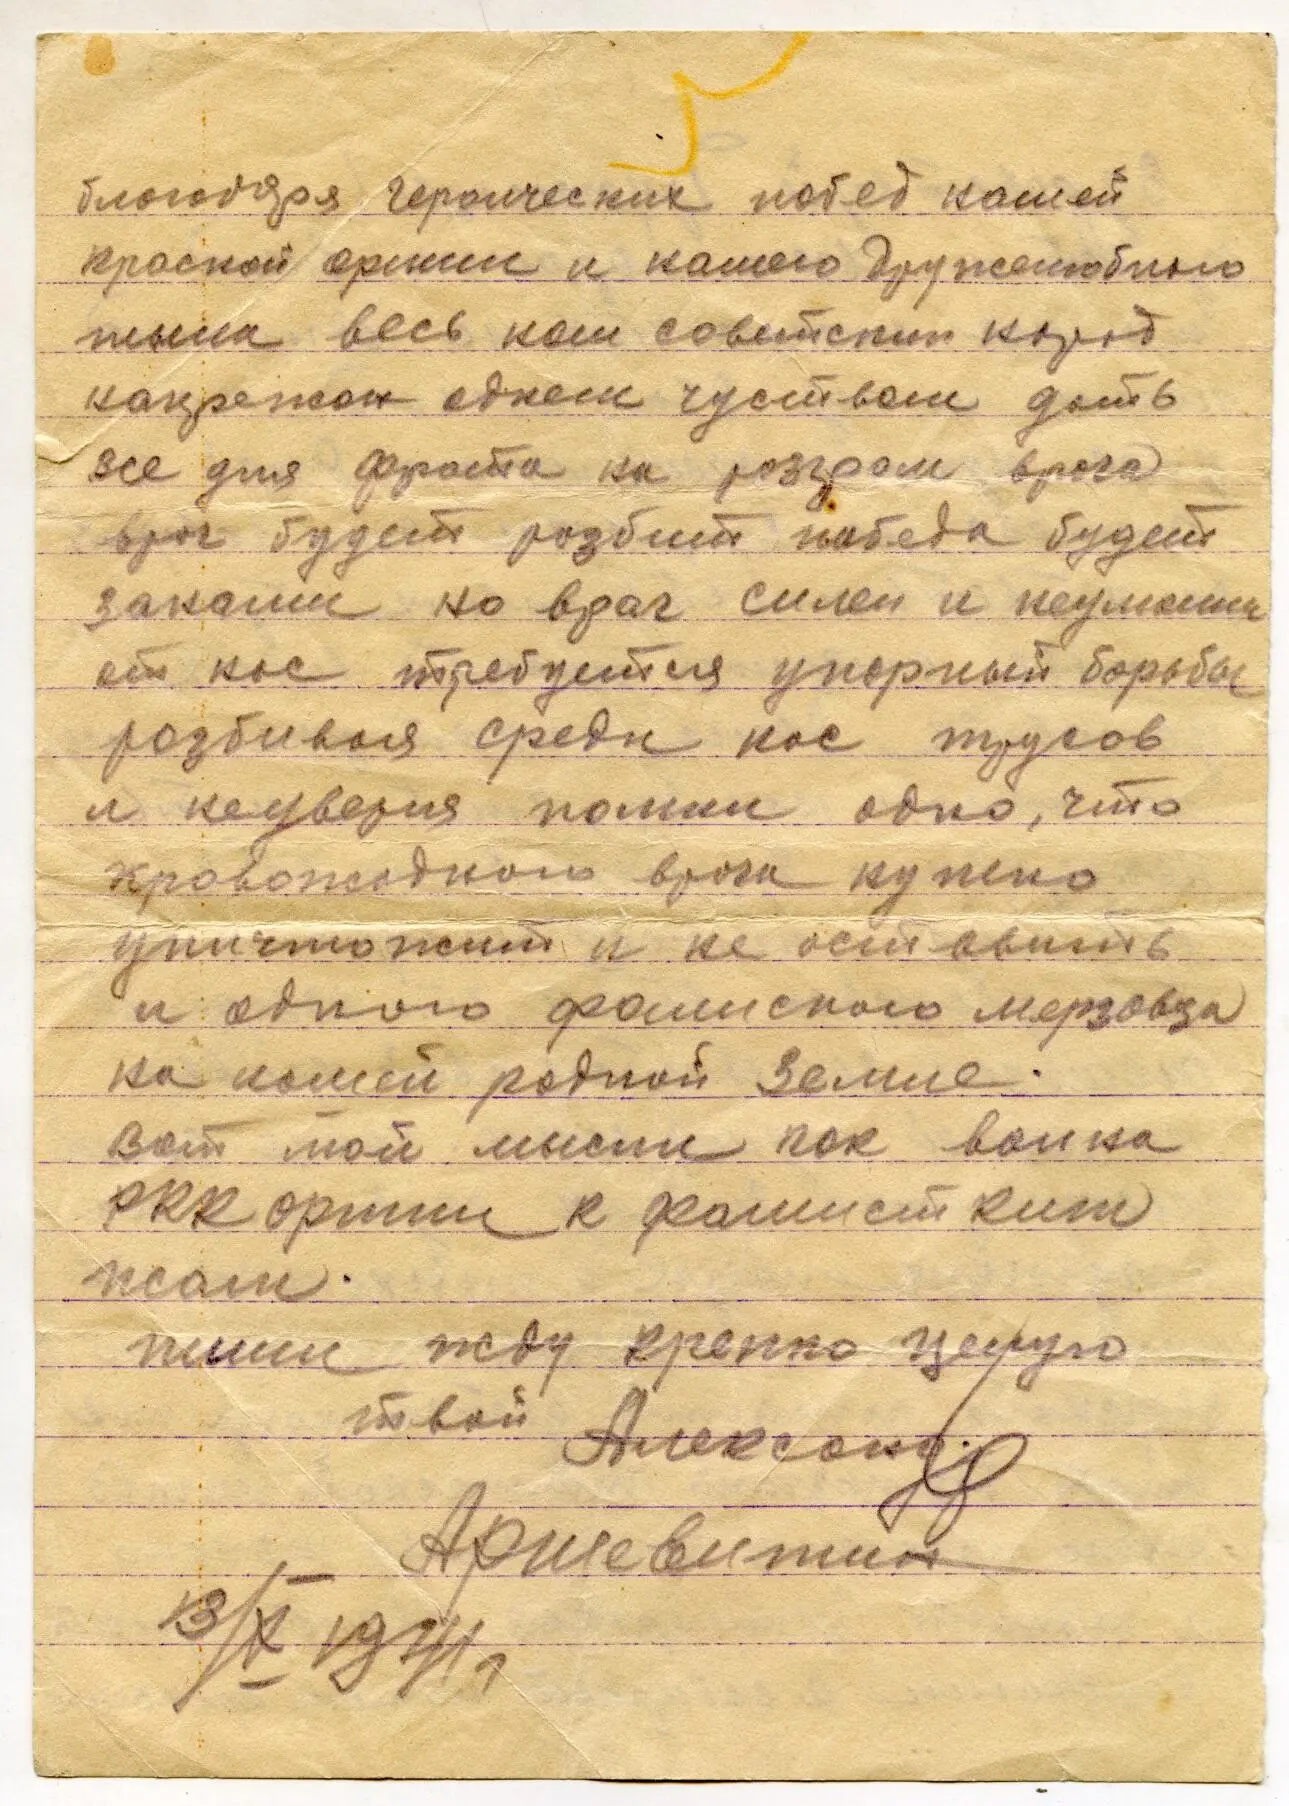 благодаря героических побед нашей
красной армии и нашего дружелюбного
тыла весь наш советский народ
напряжон однем чуством дать
все для фронта на розгром врага
враг будет розбит победа будет
законами но враг силен и неумолим
от нас требуется упорный борьбы
розбивая среди нас трусов
и неуверия помни одно, что
кровожадного врага нужно
уничтожит и не оставить
и одного фашиского мерзовца
на нашей родной земле.
вот мой мысли как воина
РКК армии к фашистким
псам.
пиши жду крепко целую
твой Александр
13/X 1941 г